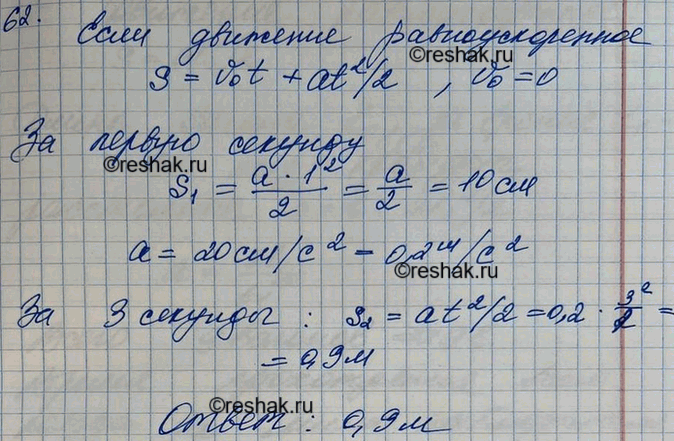 62. Если движение равноускоренное
©reshak.ru
S = v₀t + at²/2 , v₀ = 0
За первую секунду
©reshak.ru
S₁ = a · 1²/2 = a/2 = 10 см
a = 20 см/с² = 0,2 м/с²
©reshak.ru
За 3 секунды : S₂ = at²/2 = 0,2 · 3²/2 =
= 0,9 м
©reshak.ru
Ответ : 0,9 м